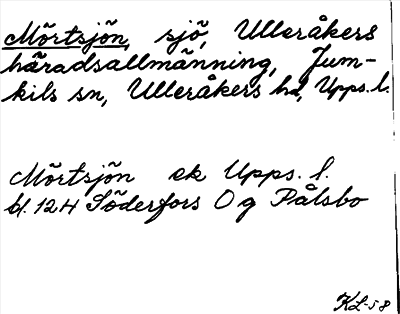 Mörtsjön, sjö, Ulleråkers
häradsallmänning, Jum-
kils sn, Ulleråkers hd, Upps. l.
Mörtsjön ek Upps. l.
bl. 124 Söderfors O g Pålsbo
KL-58